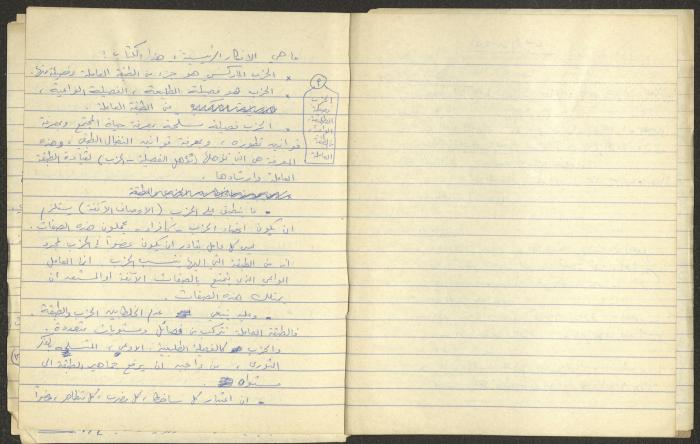 ما هي الافكار الرئيسية في هذا الكتاب؟
* الحزب الماركسي هو جزء من الطبقة العاملة وفصيلة منها.
* الحزب هو فصيلة الطليعة، الفصيلة الواعية،
من الطبقة العاملة.
* الحزب فصيلة مسلحة بمعرفة حياة المجتمع وبمعرفة
قوانين تطوره، وبمعرفة قوانين النضال الطبقي، وهذه
المعرفة هي التي تؤهلها (تؤهل الفصيلة - الحزب) لقيادة الطبقة
العاملة وارشادها.
* ما ينطبق على الحزب (الاوصاف الآنفة) يستلزم
ان يكون اعضاء الحزب - كأفراد - يحملون هذه الصفات.
ليس كل عامل بقادر ان يكون عضواً في الحزب لمجرد
انه من الطبقة التي اليها ينتسب الحزب. انما العامل
الواعي الذي يتمتع بالصفات الآنفة او المستعد ان
يمتلك هذه الصفات.
* وعليه ينبغي عدم الخلط بين الحزب والطبقة
فالطبقة العاملة تتركب من فصائل ومستويات متعددة.
والحزب كالفصيلة الطليعية، الاوعى، المتسلح بالفكر
الثوري، من واجبه ان يرفع جماهير الطبقة الى
مستواه.
* ان اعتبار كل ساخط، كل مضرب، كل متظاهر، عضواً
٩
الحزب
فصيلة
الطليعة
الطبقة
العاملة